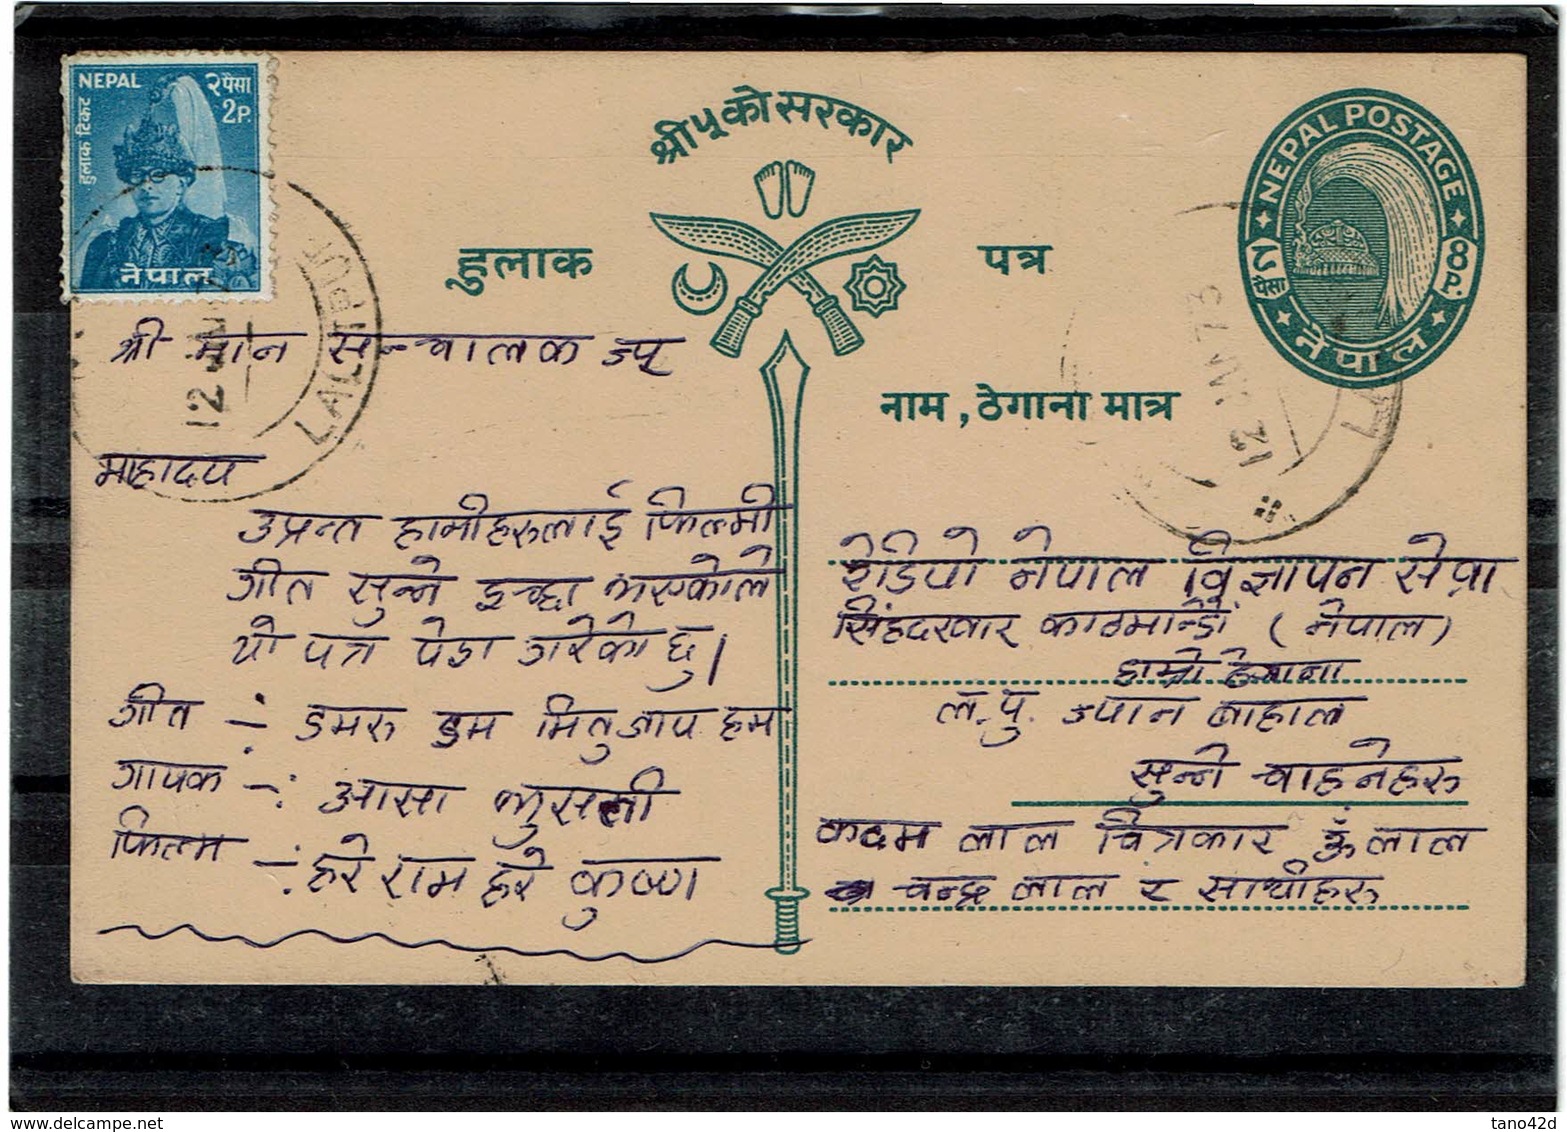 NEPAL २पैसा
2P.
हुलाक टिकट
नेपाल
श्री ५ को सरकार
हुलाक पत्र
NEPAL POSTAGE
८ पैसा 8 P.
नेपाल
नाम , ठेगाना मात्र
LALITPUR
12 JAN 73
12 JAN 73
श्री मान सन्चालक ज्यू
माहादय
उप्रन्त हामीहरुलाई फिल्मी
गीत सुन्ने इच्छा भएकोले
यो पत्र पेश गरेको छु।
गीत -: डमरु डुम मितुजाय हम
गायक -: आसा भुसली
फिल्म -: हरे राम हरे कृष्ण
रेडियो नेपाल विज्ञापन सेवा
सिंहदरवार काठमान्डौ (नेपाल)
हाम्रो ठेगाना
ल.पु. ज्यान बाहाल
सुन्ने चाहनेहरु
कदम लाल चित्रकार लाल
चन्द्र लाल र साथीहरु
www.delcampe.net
tano42d